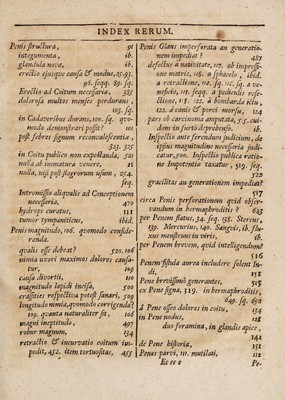 INDEX RERUM.
Penis structura, 91
integumenta, ib.
glandula nova, ib.
erectio ejusque causa & modus, 25.93.
96. sqq. 89. sq.
Erectio ad Coitum necessaria, 325
dolorosa multos menses perdurans,
103.
in Cadaveribus durans, 100. sq. quo-
modo demonstrari possit? 101
post febres signum reconvalescentiæ,
323. 325
in Coitu publico non expostulanda, 521
nulla ab immatura venere, 21
nulla, nisi post flagrorum usum, 254.
seq.
Intromissio aliqualis ad Conceptionem
necessaria, 470
hydrope curatur, 111
tumor tympaniticus, ibid.
Penis magnitudo, 106. quomodo conside-
randa.
qualis esse debeat? 520. 106
nimia uxori maximos dolores causa-
tur, 109
causa divortii, 110
magnitudo lapidi incisa, 500
crassities respectiva potest sanari, 509
longitudo nimia, quomodo corrigenda?
109. quanta naturaliter sit, 106
magni ineptitudo, 497
robur magnum, 134
retractio & incurvatio coitum im-
pedit, 452. item tortuositas, 455
Penis Glans imperforata an generatio-
nem impediat? 457
defectus à nativitate, 117. ab impressio-
ne matris, 118. a sphacelo, ibid.
a retractione, 112. sq. 115. sq. a ve-
neficio, 113. seqq. a pediculis rese-
ctione, 118. 122. a bombarda ictu,
122. a canis & porci morsu, ib.
pars ob carcinoma amputata, 515. ca-
dem in furto deprehenso. ib.
Inspectio ante ferendum judicium, de
ipsius magnitudine necessaria judi-
catur, 500. Inspectio publica ratio-
ne Impotentiæ taxatur, 519. seq.
522
gracilitas an generationem impediat?
517
circa Penis perforationem quid obser-
vandum in hermaphroditis? 643
per Penem flatus, 34. seq. 138. Stercus,
139. Mercurius, 140. Sanguis, ib. flu-
xus menstruus in viris, ib.
per Penem brevem, quid intelligendum?
516
Penem fistula aurea includere solent In-
di, 151
Pene brevissimo generantes, 515
ex Pene signa, 319. in hermaphroditis,
649. sq. 692
à Pene osseo dolores in coitu, 134
in Pene nodus, 128
duo foramina, in glandis apice,
141
de Pene historia, 151
Penes parvi, 111. mutilati, 112
Ee ee e
Pe-